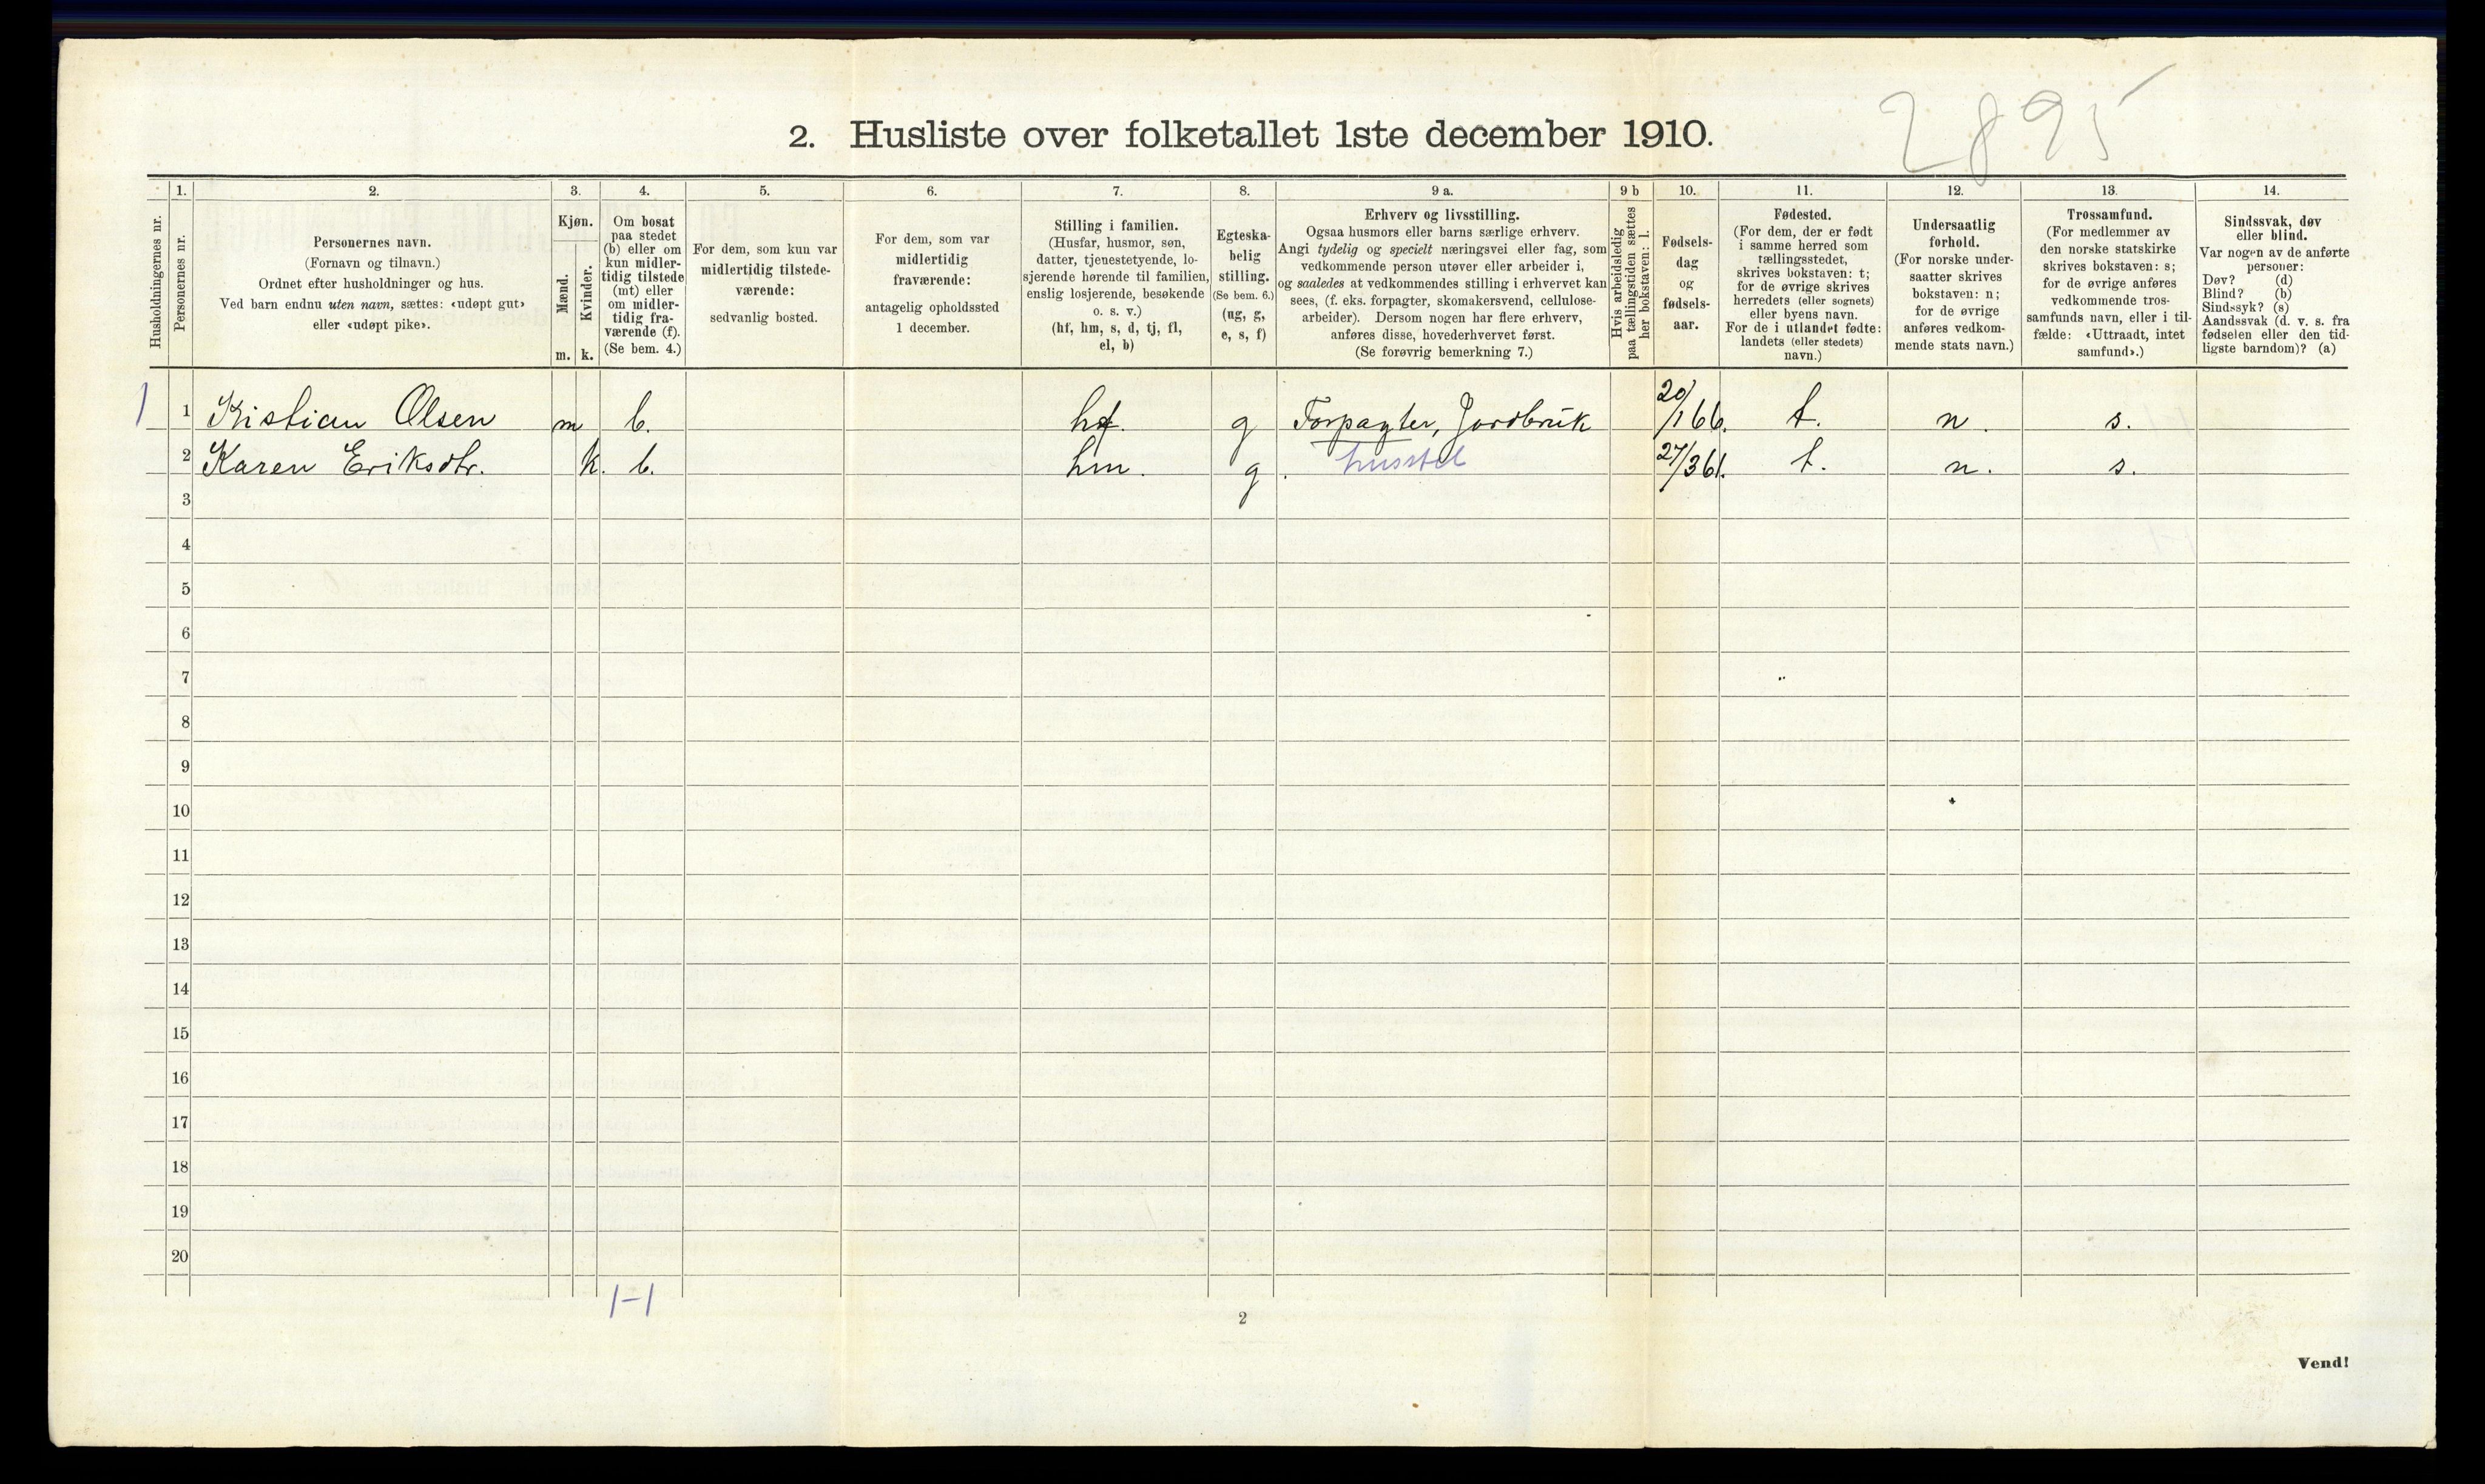 2895
2. Husliste over folketallet 1ste december 1910.
Husholdningernes nr.
1.
Personernes nr.
2.
Personernes navn.
(Fornavn og tilnavn.)
Ordnet efter husholdninger og hus.
Ved barn endnu uten navn, sættes: «udøpt gut»
eller «udøpt pike».
3.
Kjøn.
Mænd.
Kvinder.
m. k.
4.
Om bosat
paa stedet
(b) eller om
kun midler-
tidig tilstede
(mt) eller
om midler-
tidig fra-
værende (f).
(Se bem. 4.)
5.
For dem, som kun var
midlertidig tilstede-
værende:
sedvanlig bosted.
6.
For dem, som var
midlertidig
fraværende:
antagelig opholdssted
1 december.
7.
Stilling i familien.
(Husfar, husmor, søn,
datter, tjenestetyende, lo-
sjerende hørende til familien,
enslig losjerende, besøkende
o. s. v.)
(hf, hm, s, d, tj, fl,
el, b)
8.
Egteska-
belig
stilling.
(Se bem. 6.)
(ug, g,
e, s, f)
9 a.
Erhverv og livsstilling.
Ogsaa husmors eller barns særlige erhverv.
Angi tydelig og specielt næringsvei eller fag, som
vedkommende person utøver eller arbeider i,
og saaledes at vedkommendes stilling i erhvervet kan
sees, (f. eks. forpagter, skomakersvend, cellulose-
arbeider). Dersom nogen har flere erhverv,
anføres disse, hovederhvervet først.
(Se forøvrig bemerkning 7.)
9 b
Hvis arbeidsledig
paa tællingstiden sættes
her bokstaven: l.
10.
Fødsels-
dag
og
fødsels-
aar.
11.
Fødested.
(For dem, der er født
i samme herred som
tællingsstedet,
skrives bokstaven: t;
for de øvrige skrives
herredets (eller sognets)
eller byens navn.
For de i utlandet fødte:
landets (eller stedets)
navn.)
12.
Undersaatlig
forhold.
(For norske under-
saatter skrives
bokstaven: n;
for de øvrige
anføres vedkom-
mende stats navn.)
13.
Trossamfund.
(For medlemmer av
den norske statskirke
skrives bokstaven: s;
for de øvrige anføres
vedkommende tros-
samfunds navn, eller i til-
fælde: «Uttraadt, intet
samfund».)
14.
Sindssvak, døv
eller blind.
Var nogen av de anførte
personer:
Døv? (d)
Blind? (b)
Sindssyk? (s)
Aandssvak (d. v. s. fra
fødselen eller den tid-
ligste barndom)? (a)
1 1 Kristian Olsen m b. hf. g Forpagter, Jordbruk 20/1 66. t. n. s.
2 Karen Eriksdtr. k. b. hm. g. husstel 27/3 61. t. n. s.
3
4
5
6
7
8
9
10
11
12
13
14
15
16
17
18
19
20
1-1
2
Vend!